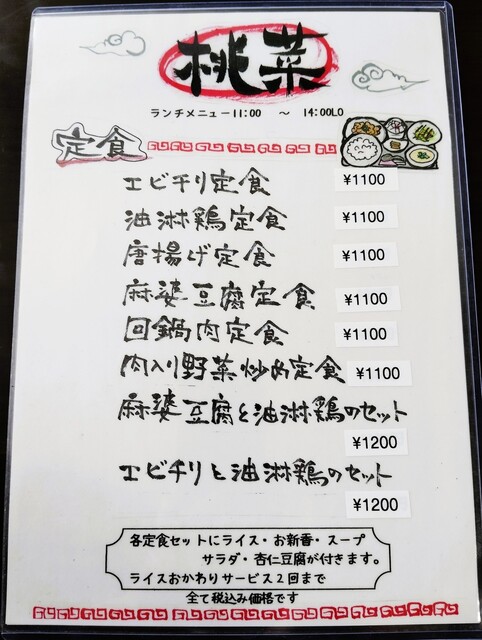 桃菜
ランチメニュー11:00 ～ 14:00LO
定食
エビチリ定食 ¥1100
油淋鶏定食 ¥1100
唐揚げ定食 ¥1100
麻婆豆腐定食 ¥1100
回鍋肉定食 ¥1100
肉入り野菜炒め定食 ¥1100
麻婆豆腐と油淋鶏のセット
¥1200
エビチリと油淋鶏のセット
¥1200
各定食セットにライス・お新香・スープ
サラダ・杏仁豆腐が付きます。
ライスおかわりサービス2回まで
全て税込み価格です